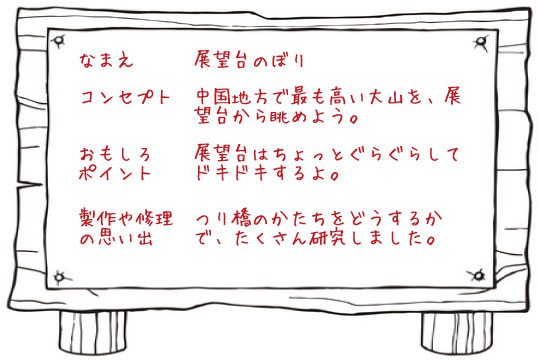 なまえ 展望台のぼり
コンセプト 中国地方で最も高い大山を、展
望台から眺めよう。
おもしろ 展望台はちょっとぐらぐらして
ポイント ドキドキするよ。
製作や修理 つり橋のかたちをどうするか
の思い出 で、たくさん研究しました。